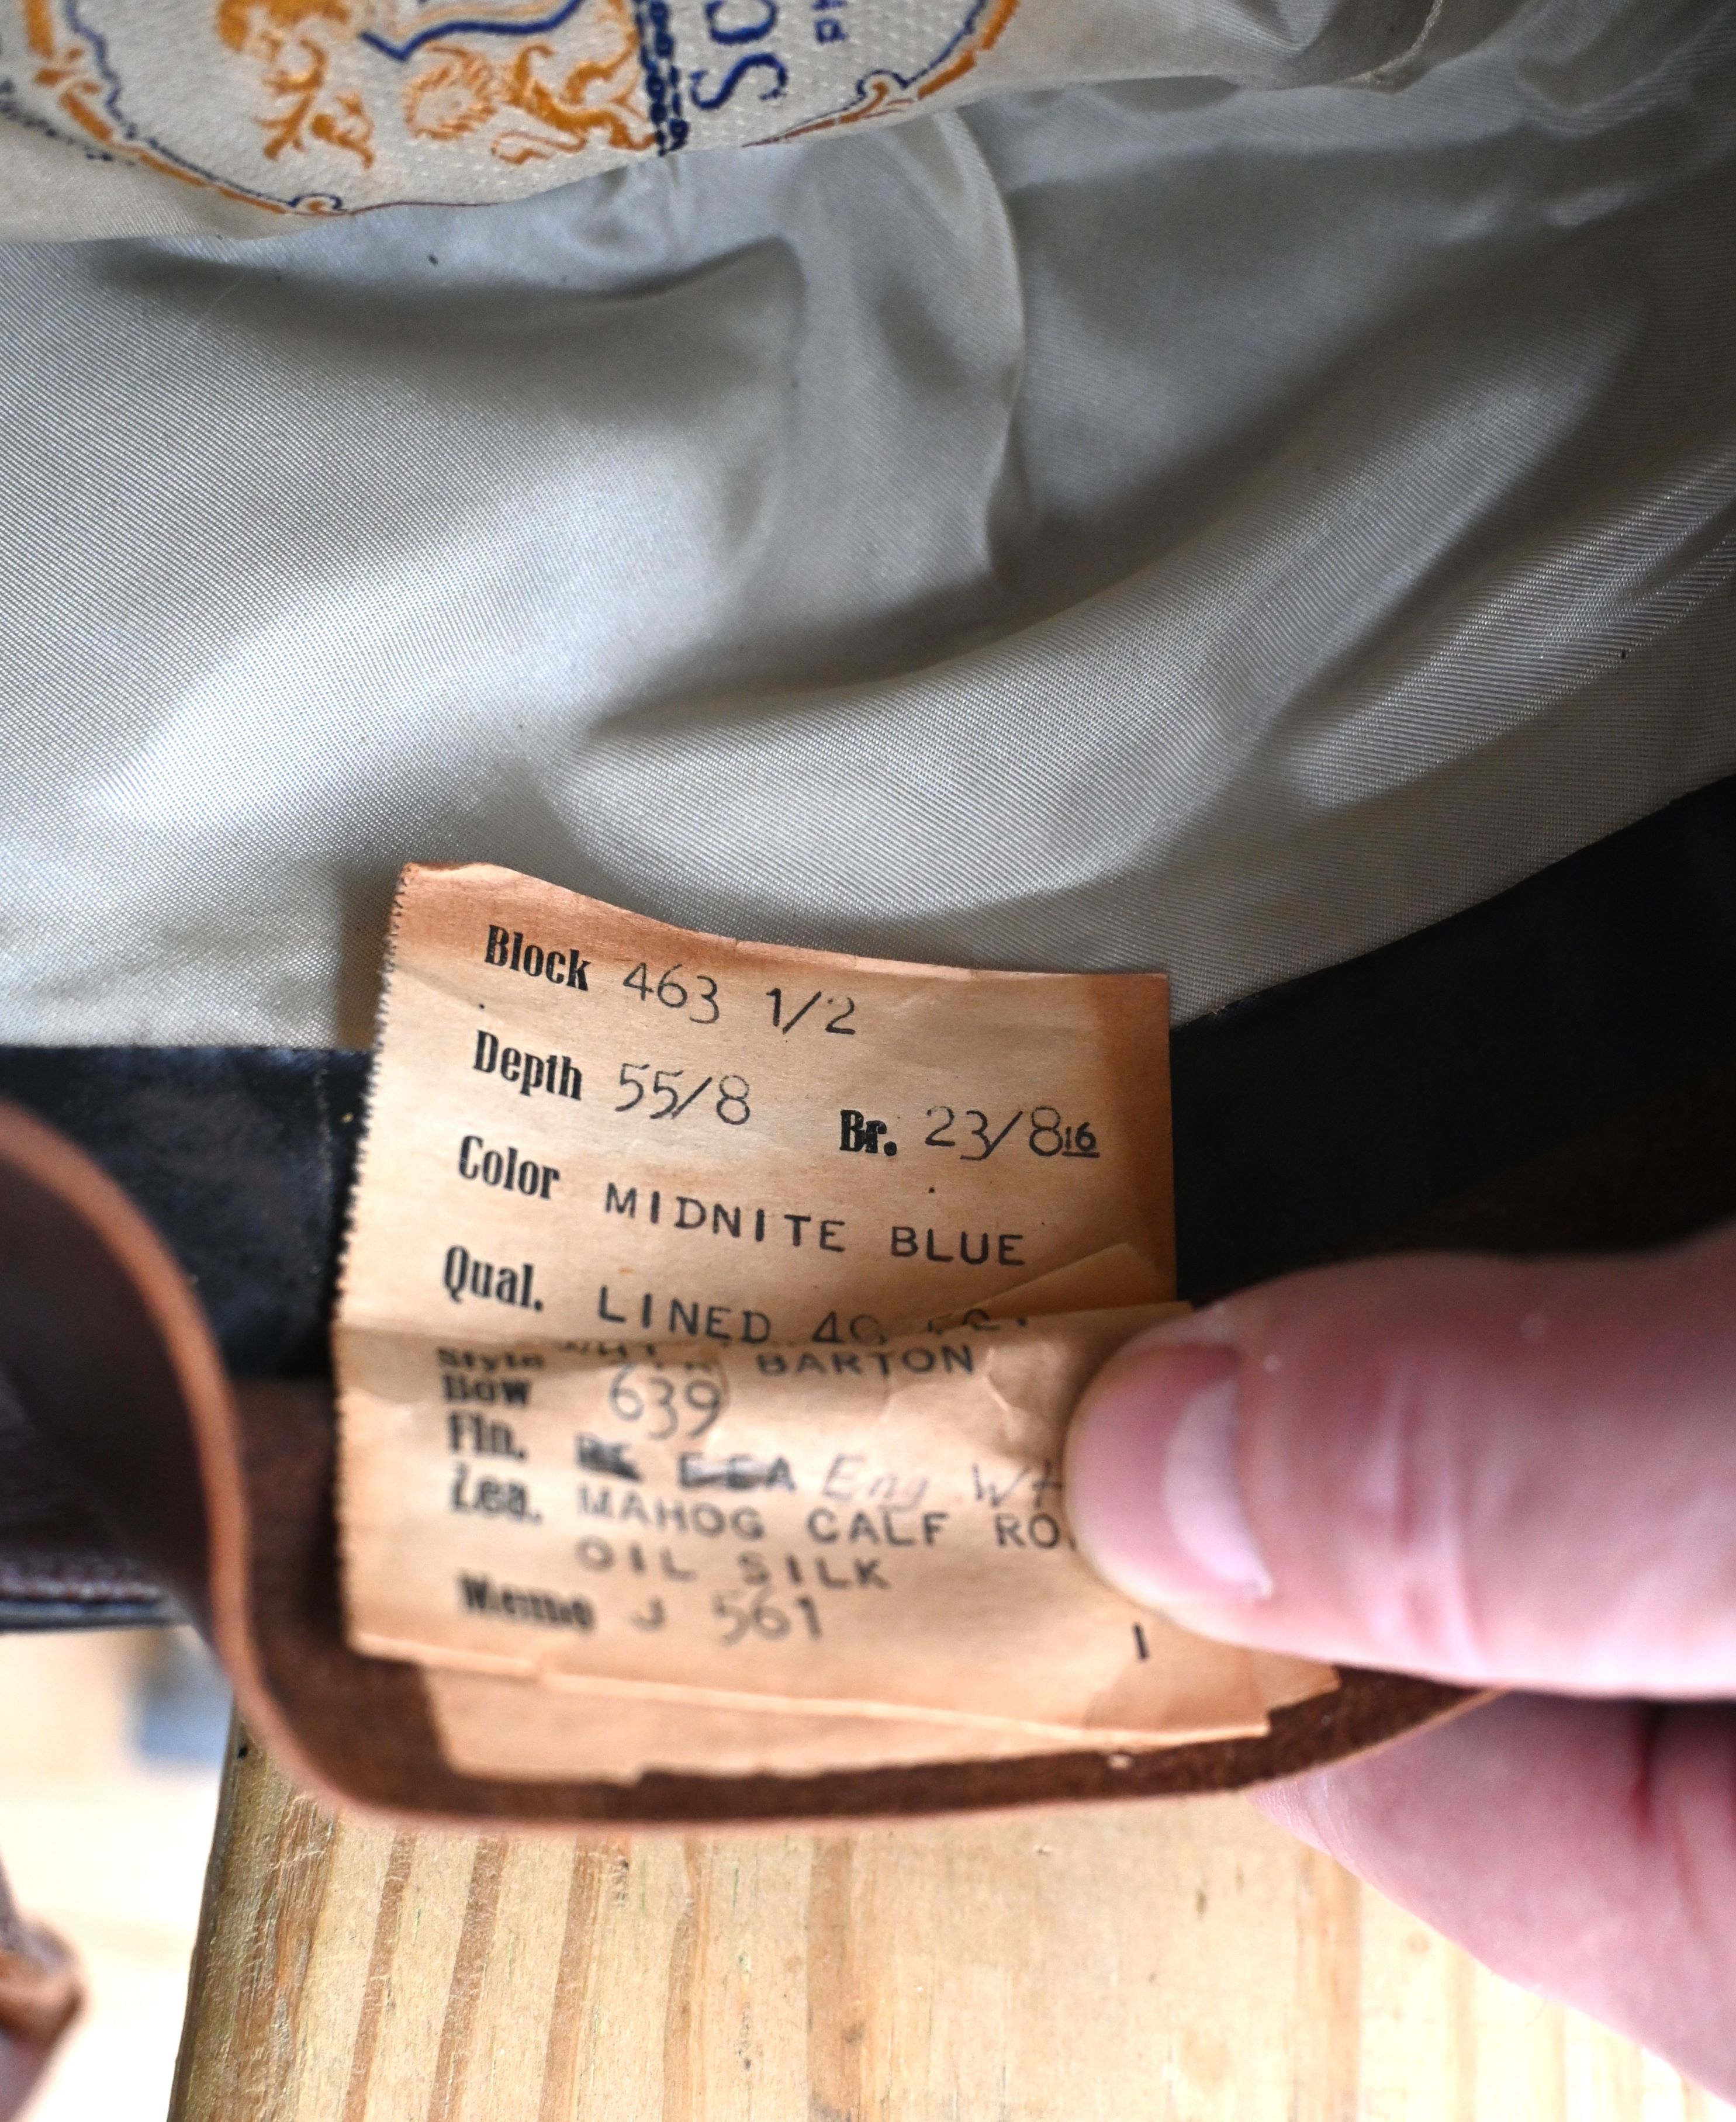 SC
Block 463 1/2
Depth 55/8 Br. 23/8 16
Color MIDNITE BLUE
Qual. LINED 40
Style BARTON
Bow 639
Fin. Eng
Lea. MAHOG CALF RO.
OIL SILK
Memo J 561
1